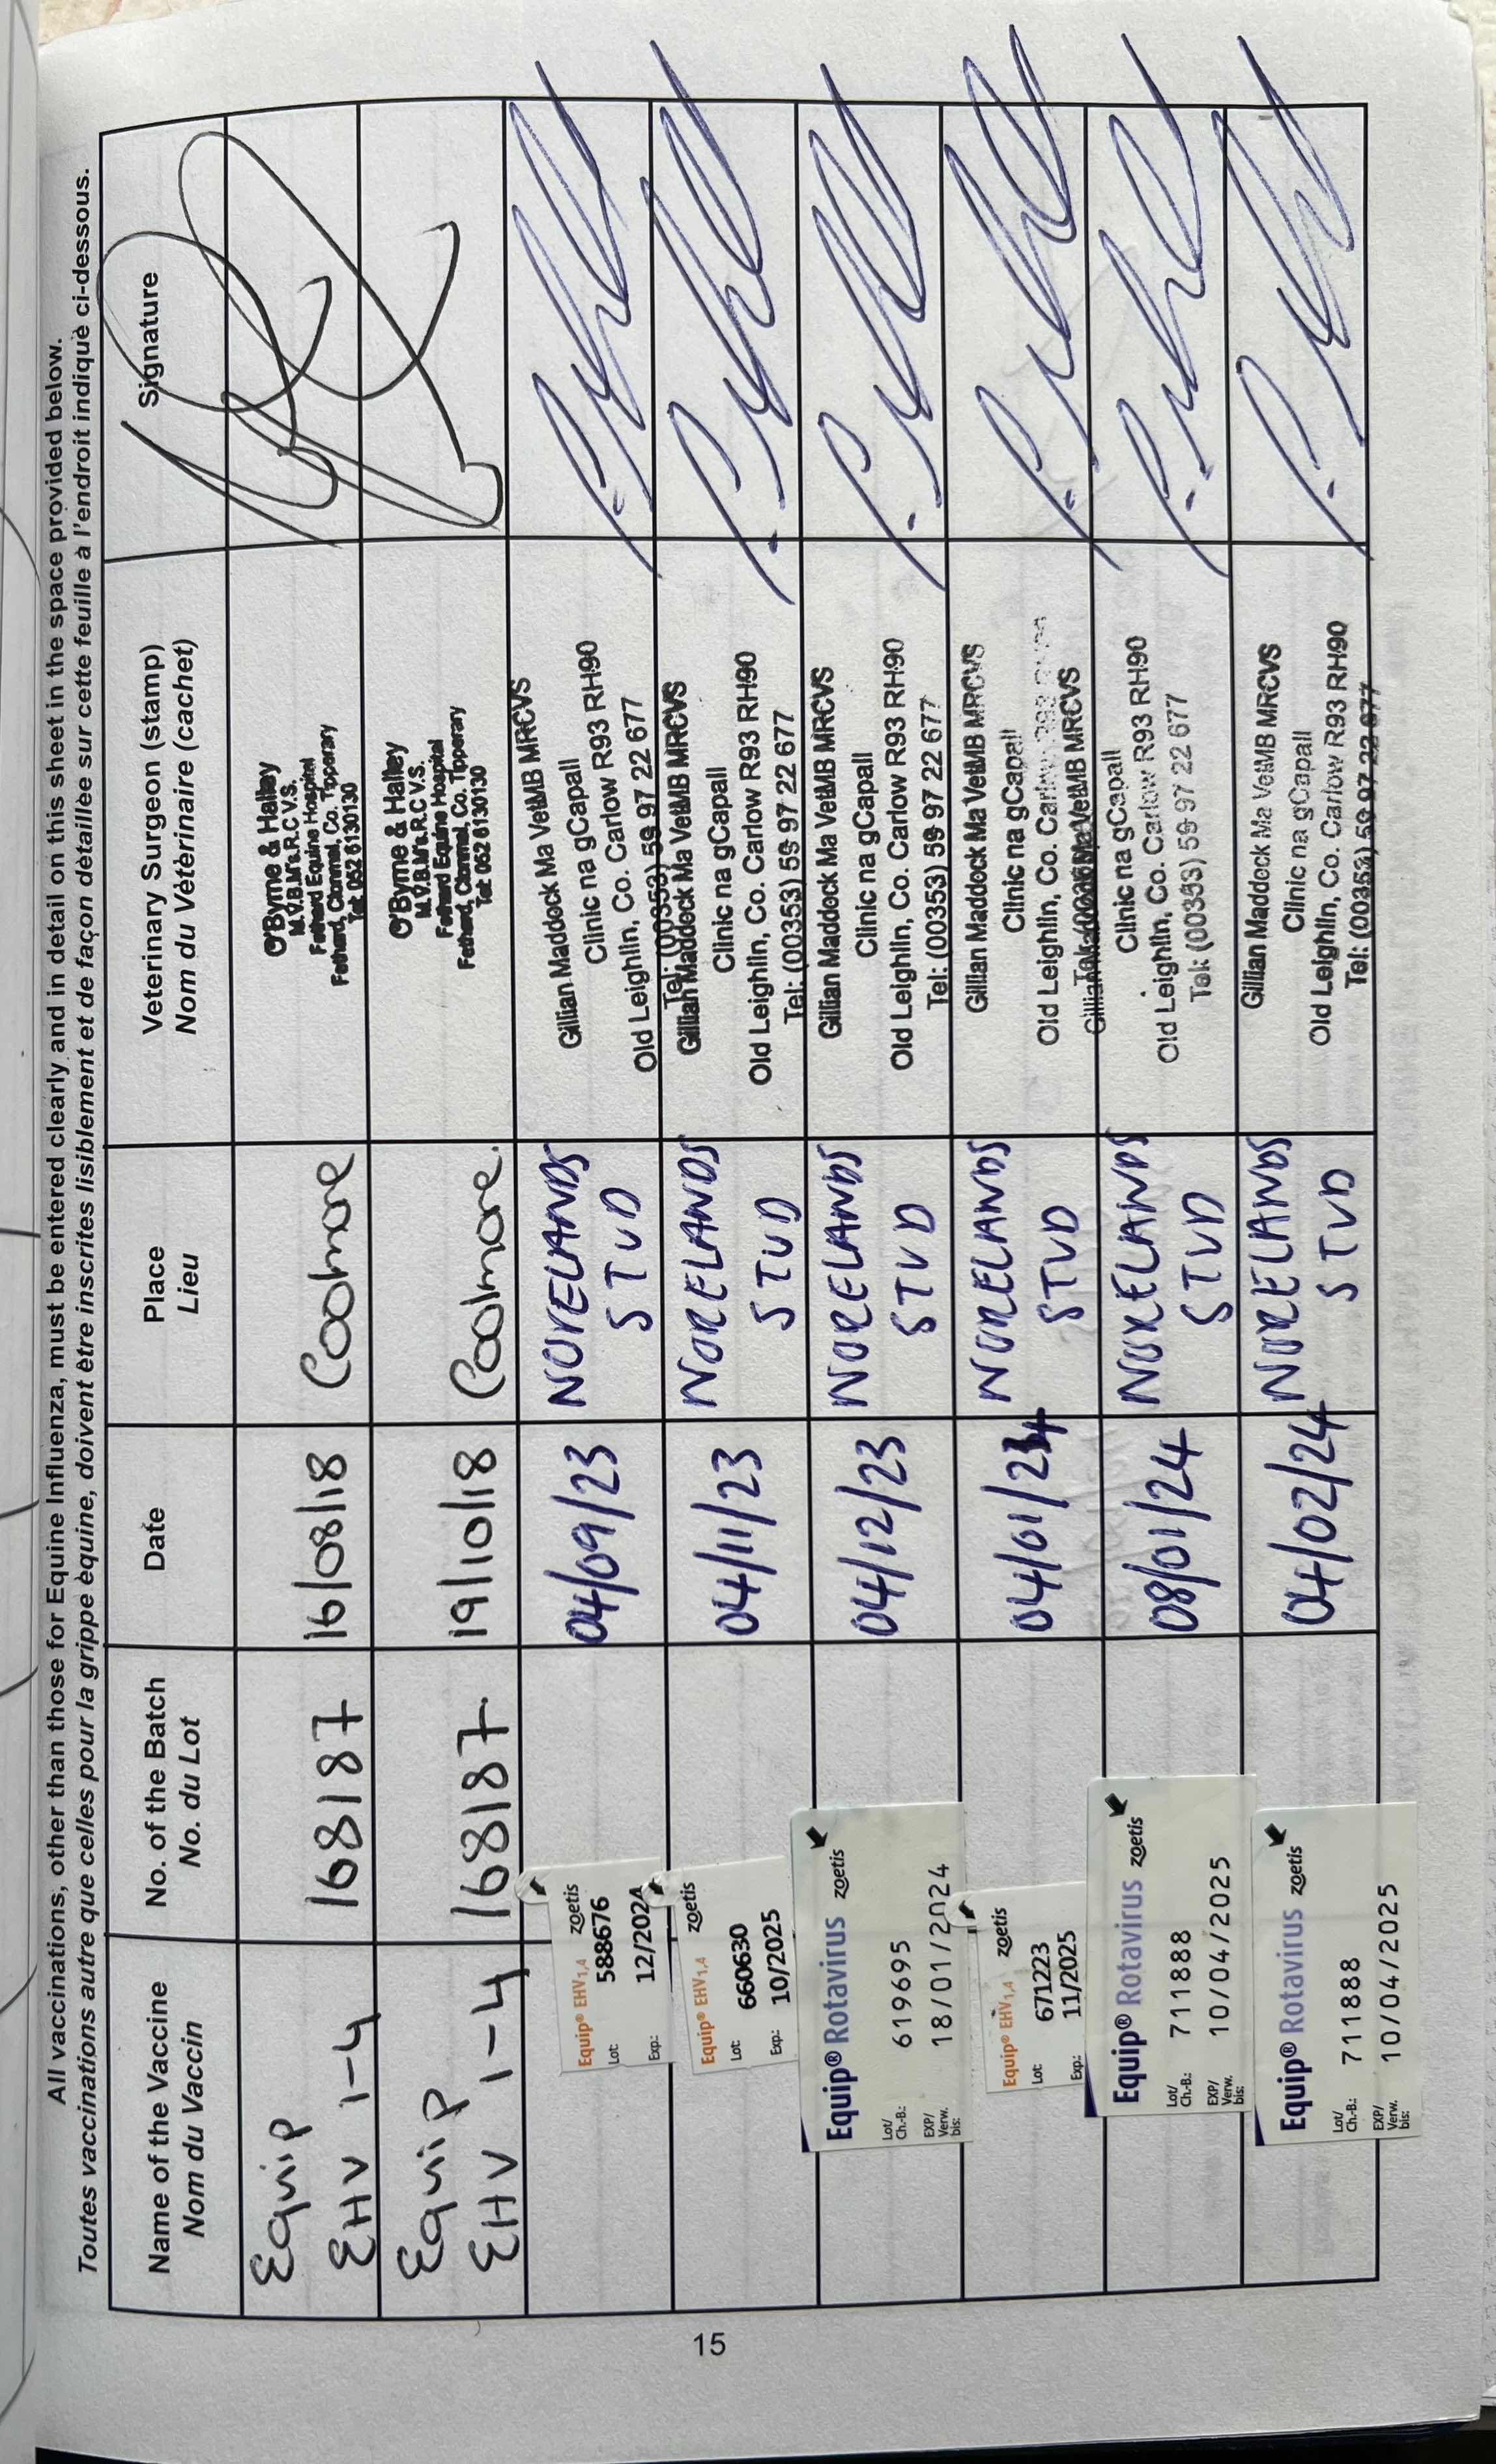 All vaccinations, other than those for Equine Influenza, must be entered clearly and in detail on this sheet in the space provided below.
Toutes vaccinations autre que celles pour la grippe èquine, doivent ètre inscrites lisiblement et de façon dètaillèe sur cette feuille à l'endroit indiquè ci-dessous.
Name of the Vaccine
Nom du Vaccin
No. of the Batch
No. du Lot
Date
Place
Lieu
Veterinary Surgeon (stamp)
Nom du Vètèrinaire (cachet)
Signature
Equip
EHV 1-4
168187
16/08/18
Coolmore
O'Byrne & Halley
M.V.B.M's.R.C V.S.
Fethard Equine Hospital
Fethard, Clonmel, Co. Tipperary
Tel: 052 6130130
Equip
EHV 1-4
168187
19/10/18
Coolmore.
O'Byrne & Halley
M.V.B.M's.R.C V.S.
Fethard Equine Hospital
Fethard, Clonmel, Co. Tipperary
Tel: 052 6130130
Equip® EHV1,4 zoetis
Lot: 588676
Exp.: 12/2024
04/09/23
NORELANDS
STUD
Gillian Maddock Ma VetMB MRCVS
Clinic na gCapall
Old Leighlin, Co. Carlow R93 RH90
Tel: (00353) 59 97 22 677
Equip® EHV1,4 zoetis
Lot: 660630
Exp.: 10/2025
04/11/23
NORELANDS
STUD
Gillian Maddock Ma VetMB MRCVS
Clinic na gCapall
Old Leighlin, Co. Carlow R93 RH90
Tel: (00353) 59 97 22 677
Equip® Rotavirus zoetis
Lot/
Ch.-B.: 619695
EXP/
Verw.
bis: 18/01/2024
04/12/23
NORELANDS
STUD
Gillian Maddock Ma VetMB MRCVS
Clinic na gCapall
Old Leighlin, Co. Carlow R93 RH90
Tel: (00353) 59 97 22 677
Equip® EHV1,4 zoetis
Lot: 671223
Exp.: 11/2025
04/01/24
NORELANDS
STUD
Gillian Maddock Ma VetMB MRCVS
Clinic na gCapall
Old Leighlin, Co. Carlow R93
Equip® Rotavirus zoetis
Lot/
Ch.-B.: 711888
EXP/
Verw.
bis: 10/04/2025
08/01/24
NORELANDS
STUD
Gillian Maddock Ma VetMB MRCVS
Clinic na gCapall
Old Leighlin, Co. Carlow R93 RH90
Tel: (00353) 59 97 22 677
Equip® Rotavirus zoetis
Lot/
Ch.-B.: 711888
EXP/
Verw.
bis: 10/04/2025
04/02/24
NORELANDS
STUD
Gillian Maddock Ma VetMB MRCVS
Clinic na gCapall
Old Leighlin, Co. Carlow R93 RH90
Tel: (00353) 59 97 22 677
15